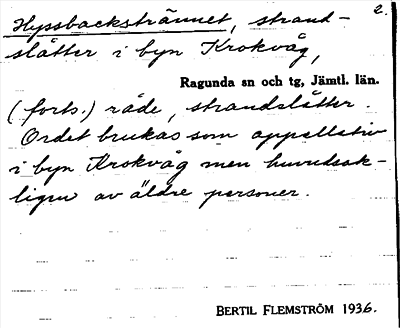 Hyssbackstrännet, strand- 2.
slåtter i byn Krokvåg,
Ragunda sn och tg, Jämtl. län.
(forts.) råde, strandslåtter.
Ordet brukas som appellativ
i byn Krokvåg men huvudsak-
ligen av äldre personer.
BERTIL FLEMSTRÖM 1936.